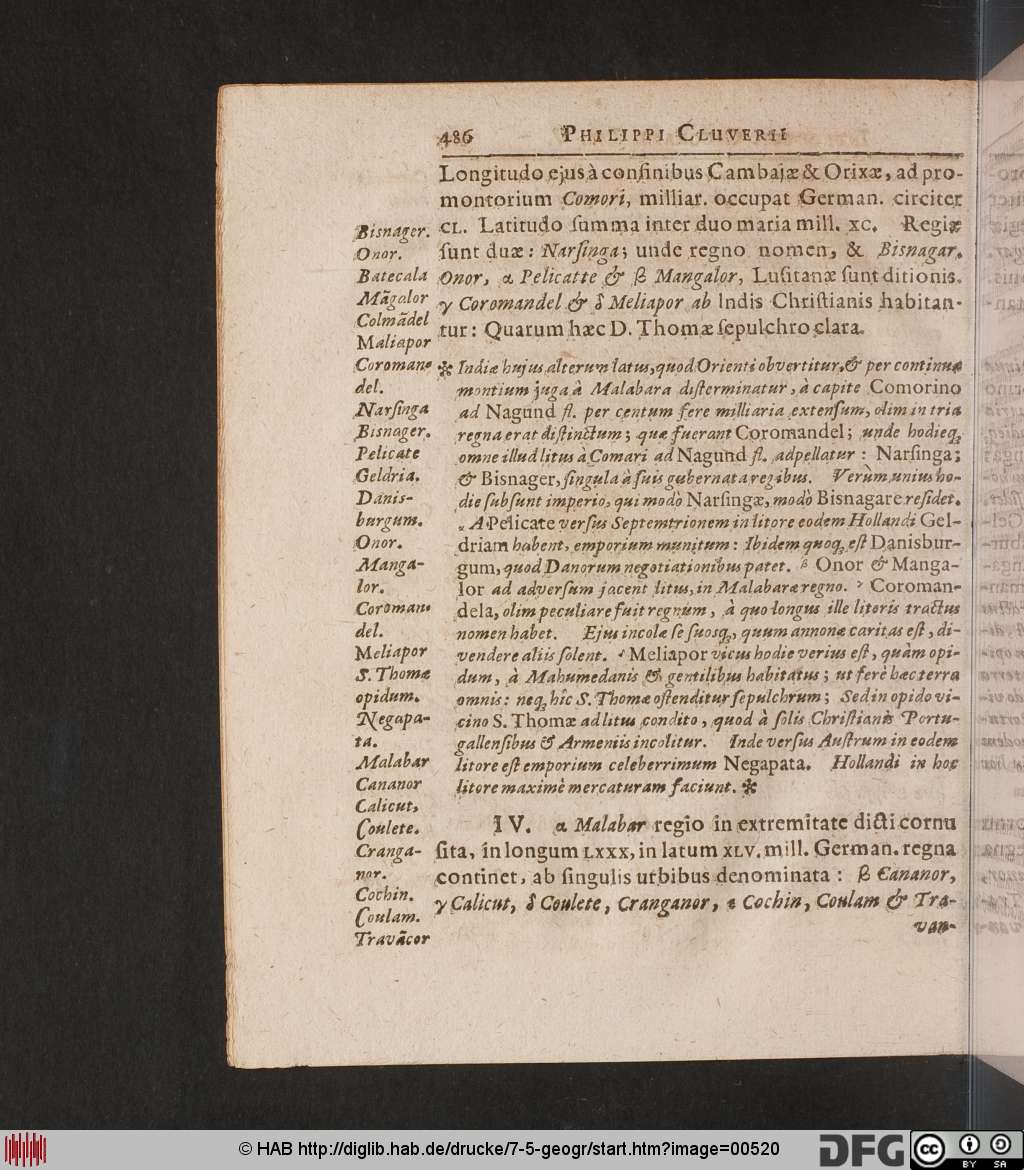 486 PHILIPPI CLUVERII
Longitudo ejus à confinibus Cambajæ & Orixæ, ad pro-
montorium Comori, milliar. occupat German. circiter
CL. Latitudo summa inter duo maria mill. XC. Regiæ
sunt duæ: Narsinga; unde regno nomen, & Bisnagar.
Onor, α Pelicatte & β Mangalor, Lusitanæ sunt ditionis.
γ Coromandel & δ Meliapor ab Indis Christianis habitan-
tur: Quarum hæc D. Thomæ sepulchro clara.
Bisnager.
Onor.
Batecala
Mãgalor
Colmãdel
Maliapor
Coroman-
del.
Narsinga
Bisnager.
Pelicate
Geldria.
Danis-
burgum.
Onor.
Manga-
lor.
Coroman-
del.
Meliapor
S. Thomæ
opidum.
Negapa-
ta.
Malabar
Cananor
Calicut,
Coulete.
Cranga-
nor.
Cochin.
Coulam.
Travãcor
* Indiæ hujus alterum latus, quod Orienti obvertitur, & per continua
montium juga à Malabara disterminatur, à capite Comorino
ad Nagund fl. per centum fere milliaria extensum, olim in tria
regna erat distinctum; quæ fuerant Coromandel; unde hodieq;
omne illud litus à Comari ad Nagund fl. adpellatur: Narsinga;
& Bisnager, singula à suis gubernata regibus. Verùm unius ho-
die subsunt imperio, qui modò Narsingæ, modò Bisnagare residet.
α A Pelicate versus Septemtrionem in litore eodem Hollandi Gel-
driam habent, emporium munitum: Ibidem quoq; est Danisbur-
gum, quod Danorum negotiationibus patet. β Onor & Manga-
lor ad adversum jacent litus, in Malabaræ regno. γ Coroman-
dela, olim peculiare fuit regnum, à quo longus ille litoris tractus
nomen habet. Ejus incolæ se suosq;, quum annonæ caritas est, di-
vendere aliis solent. δ Meliapor vicus hodie verius est, quàm opi-
dum, à Mahumedanis & gentilibus habitatus; ut ferè hæc terra
omnis: neq; hîc S. Thomæ ostenditur sepulchrum; Sed in opido vi-
cino S. Thomæ ad litus condito, quod à solis Christianis Portu-
gallensibus & Armeniis incolitur. Inde versus Austrum in eodem
litore est emporium celeberrimum Negapata. Hollandi in hoc
litore maximè mercaturam faciunt. *
IV. α Malabar regio in extremitate dicti cornu
sita, in longum LXXX, in latum XLV. mill. German. regna
continet, ab singulis urbibus denominata: β Cananor,
γ Calicut, δ Coulete, Cranganor, ε Cochin, Coulam & Tra-
van-
© HAB http://diglib.hab.de/drucke/7-5-geogr/start.htm?image=00520
DFG
cc BY SA